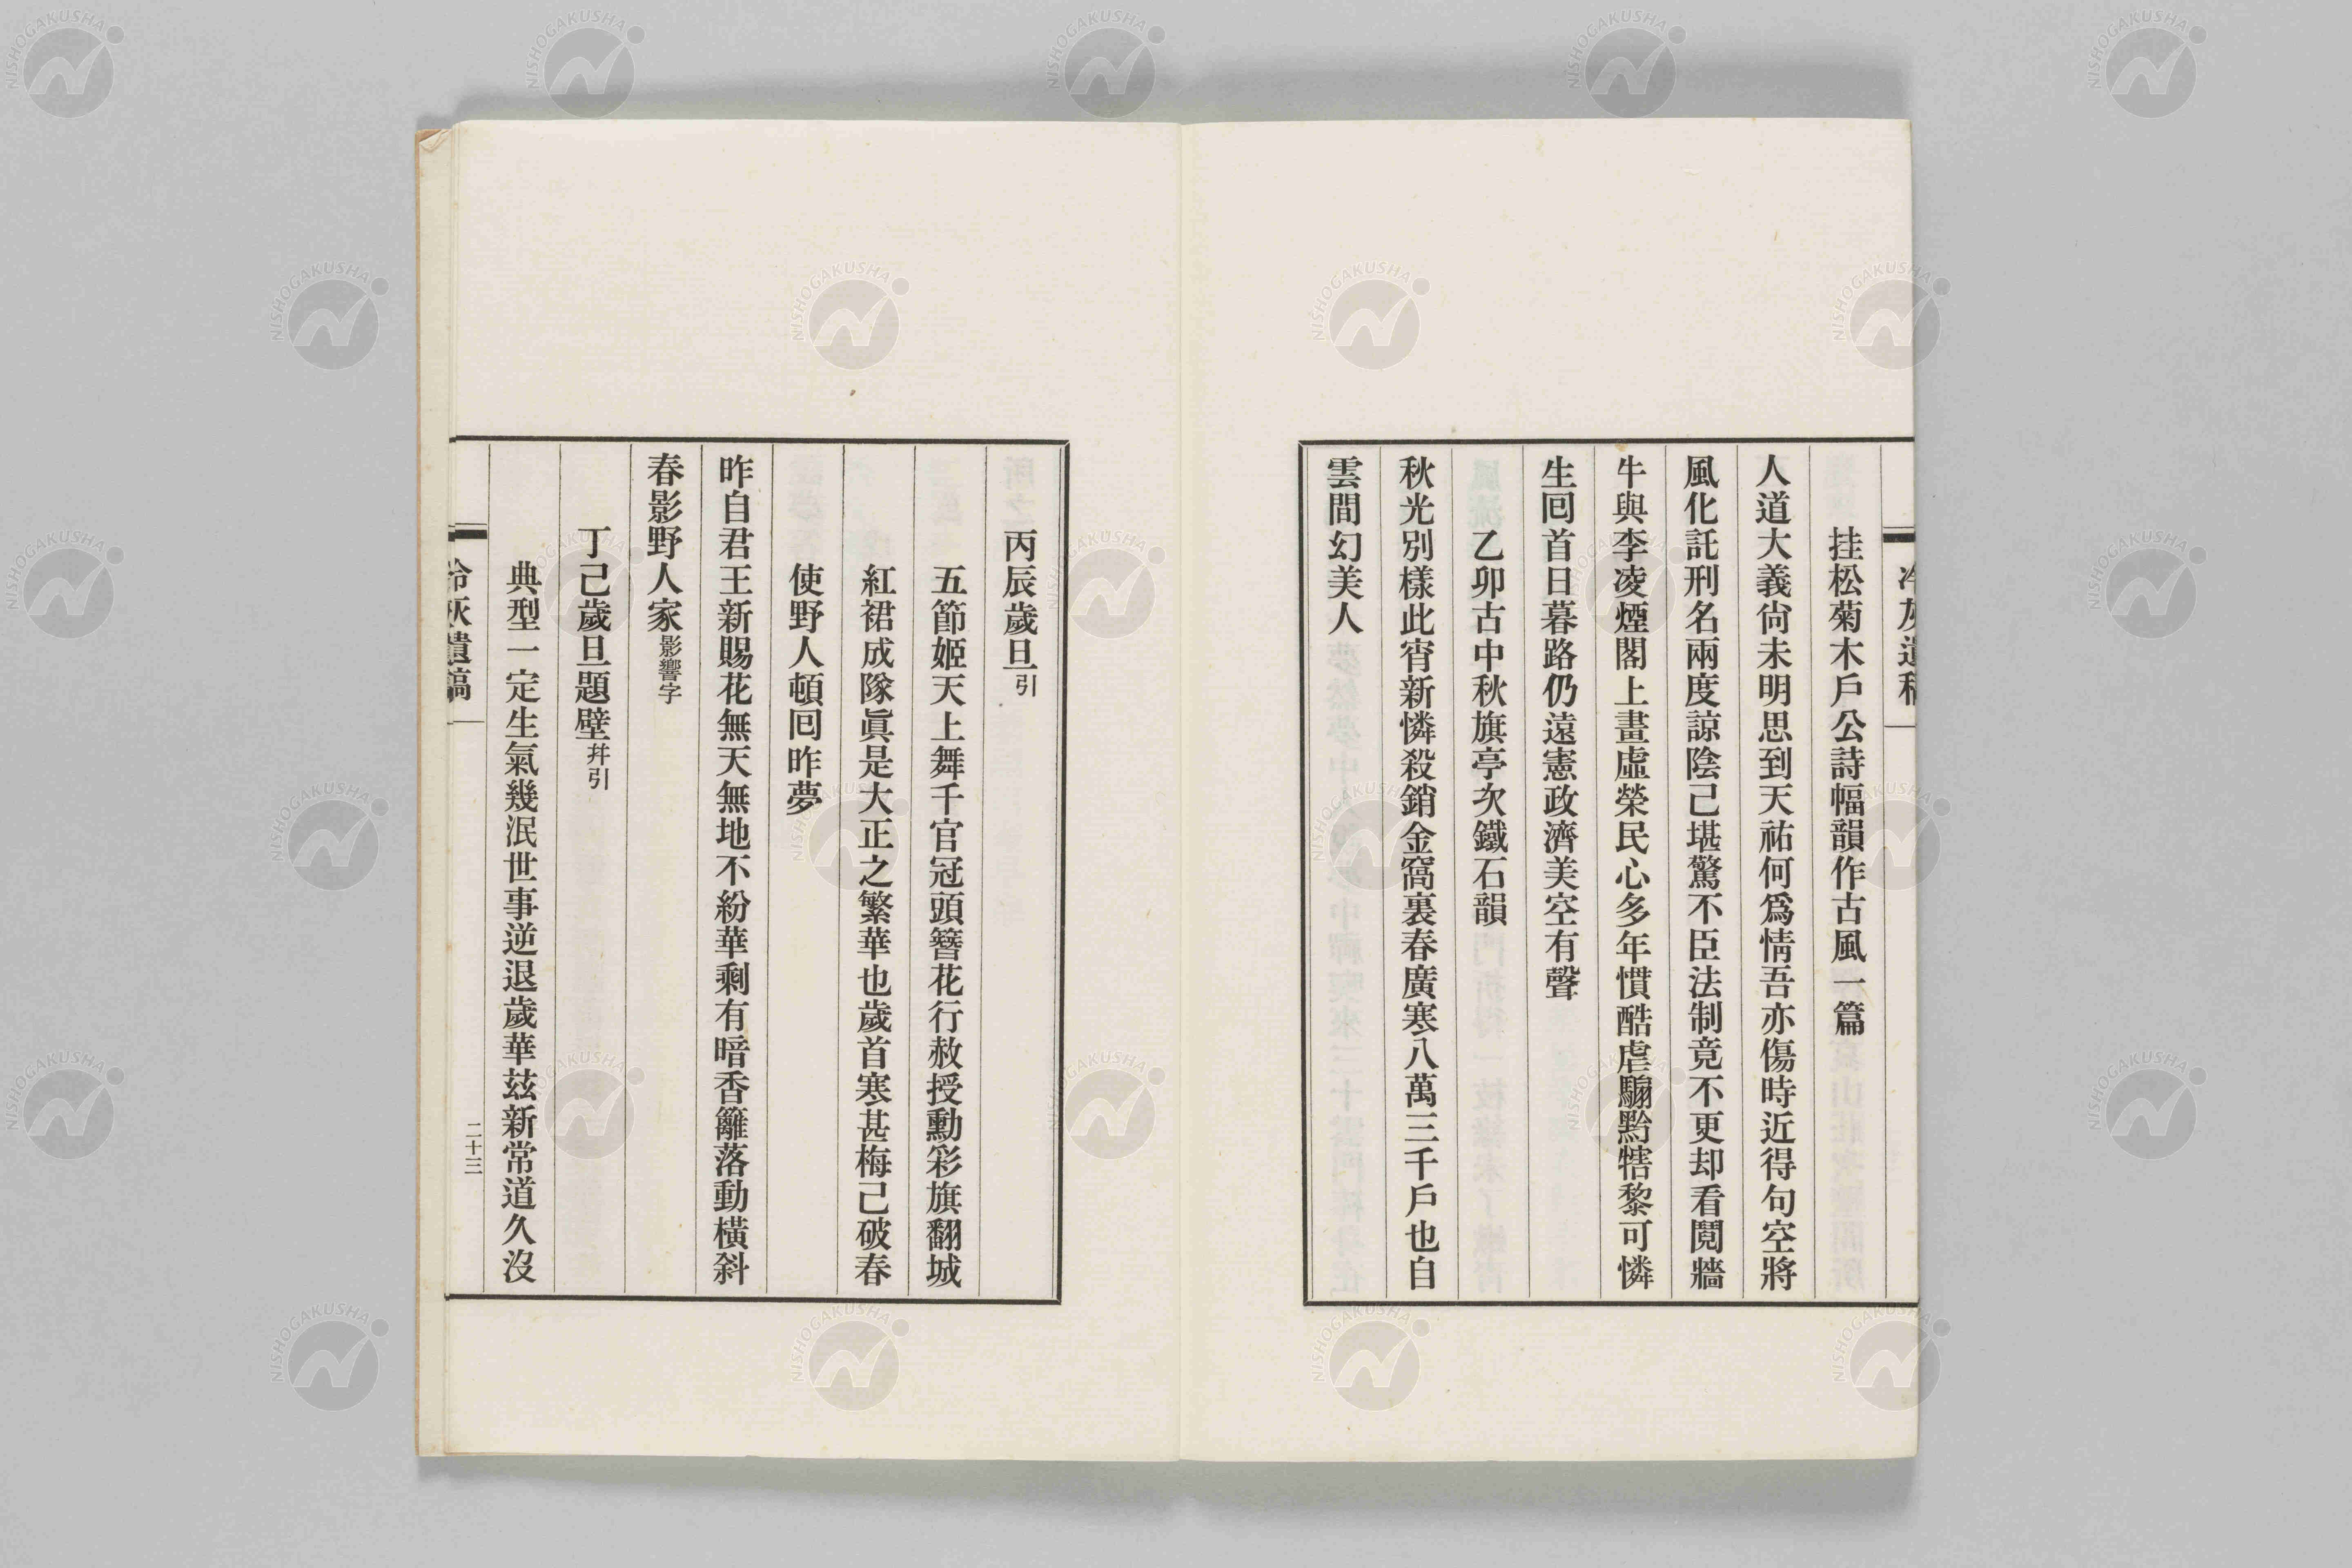 冷灰遺稿
挂松菊木戶公詩幅韻作古風一篇
人道大義尙未明思到天祐何爲情吾亦傷時近得句空將
風化託刑名兩度諒陰己堪驚不臣法制竟不更却看鬩牆
牛與李凌煙閣上畫虛榮民心多年慣酷虐騸黥犗黎可憐
生回首日暮路仍遠憲政濟美空有聲
乙卯古中秋旗亭次鐵石韻
秋光別樣此宵新憐殺銷金窩裏春廣寒八萬三千戶也自
雲間幻美人
丙辰歲旦引
五節姬天上舞千官冠頭簪花行赦授勳彩旗翻城
紅裙成隊眞是大正之繁華也歲首寒甚梅己破春
使野人頓回昨夢
昨自君王新賜花無天無地不紛華剩有暗香籬落動橫斜
春影野人家影響字
丁己歲旦題壁幷引
典型一定生氣幾泯世事逆退歲華玆新常道久沒
冷灰遺稿
二十三
NISHOGAKUSHA